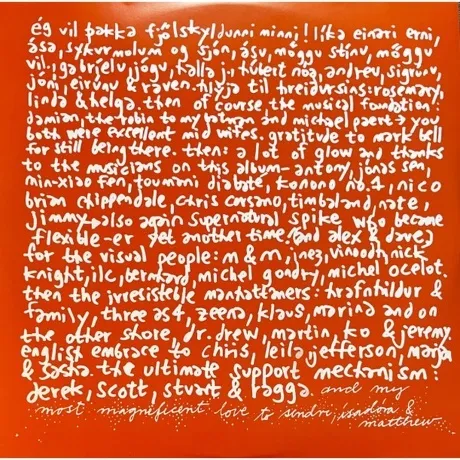 ég vil þakka fjölskyldunni minni! líka einari erni,
ása, sykurmolum og sjón, ásu, möggu stínu, möggu
vil., gabríelu, jógu, halla j., húbert nóa, andreu, sigrúnu,
jóni, eirúnu & raven. hlýja til hreiðursins: rosemary,
linda & helga. then of course, the musical foundation:
damian, the robin to my batman and michael paert → you
both were excellent mid wifes. gratitude to mark bell
for still being there. then: a lot of glow and thanks
to the musicians on this album- antony, jónas sen,
min-xiao fen, toumani diabate, konono no.1, nico
brian chippendale, chris corsano, timbaland, nate,
jimmy. also again supernatural spike who became
flexible-er yet another time and alex & davej
for the visual people: m & m, inez, vinoodh, nick
knight, ilc, bernhard, michel gondry, michel ocelot.
then the irresisteble manhattamers: hrafnhildur &
family, three as4, zeena, klaus, marina and on
the other shore dr. drew, martin, ko & jeremy
english embrace to chris, leila, jefferson, marja
& sasha. the ultimate support mechanism:
derek, scott, stuart & ragga. and my
most magnificent love to sindri, isadóra &
matthew